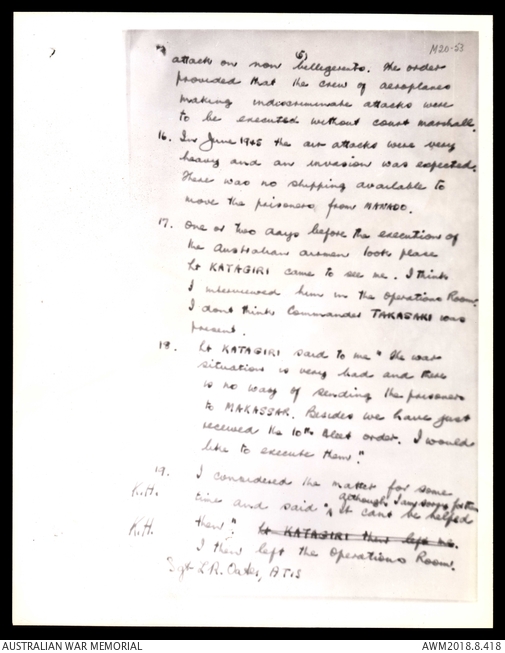 M20-53
(5)
attack on non belligerents. The order
provided that the crew of aeroplanes
making indiscriminate attacks were
to be executed without court marshall.
16. In June 1945 the air attacks were very
heavy and an invasion was expected.
There was no shipping available to
move the prisoners from MANADO.
17. One or two days before the execution of
the Australian airmen took place
Lt KATAGIRI came to see me. I think
I interviewed him in the Operations Room.
I dont think Commander TAKASAKI was
present.
18. Lt KATAGIRI said to me "The war
situation is very bad and there
is no way of sending the prisoners
to MAKASSAR. Besides we have just
received the 10th Fleet order. I would
like to execute them."
19. I considered the matter for some
although I am sorry for them
K.H. time and said "it cant be helped
K.H. then." Lt KATAGIRI then left me.
I then left the Operations Room.
Sgt L.R. Oates, ATIS
AUSTRALIAN WAR MEMORIAL
AWM2018.8.418